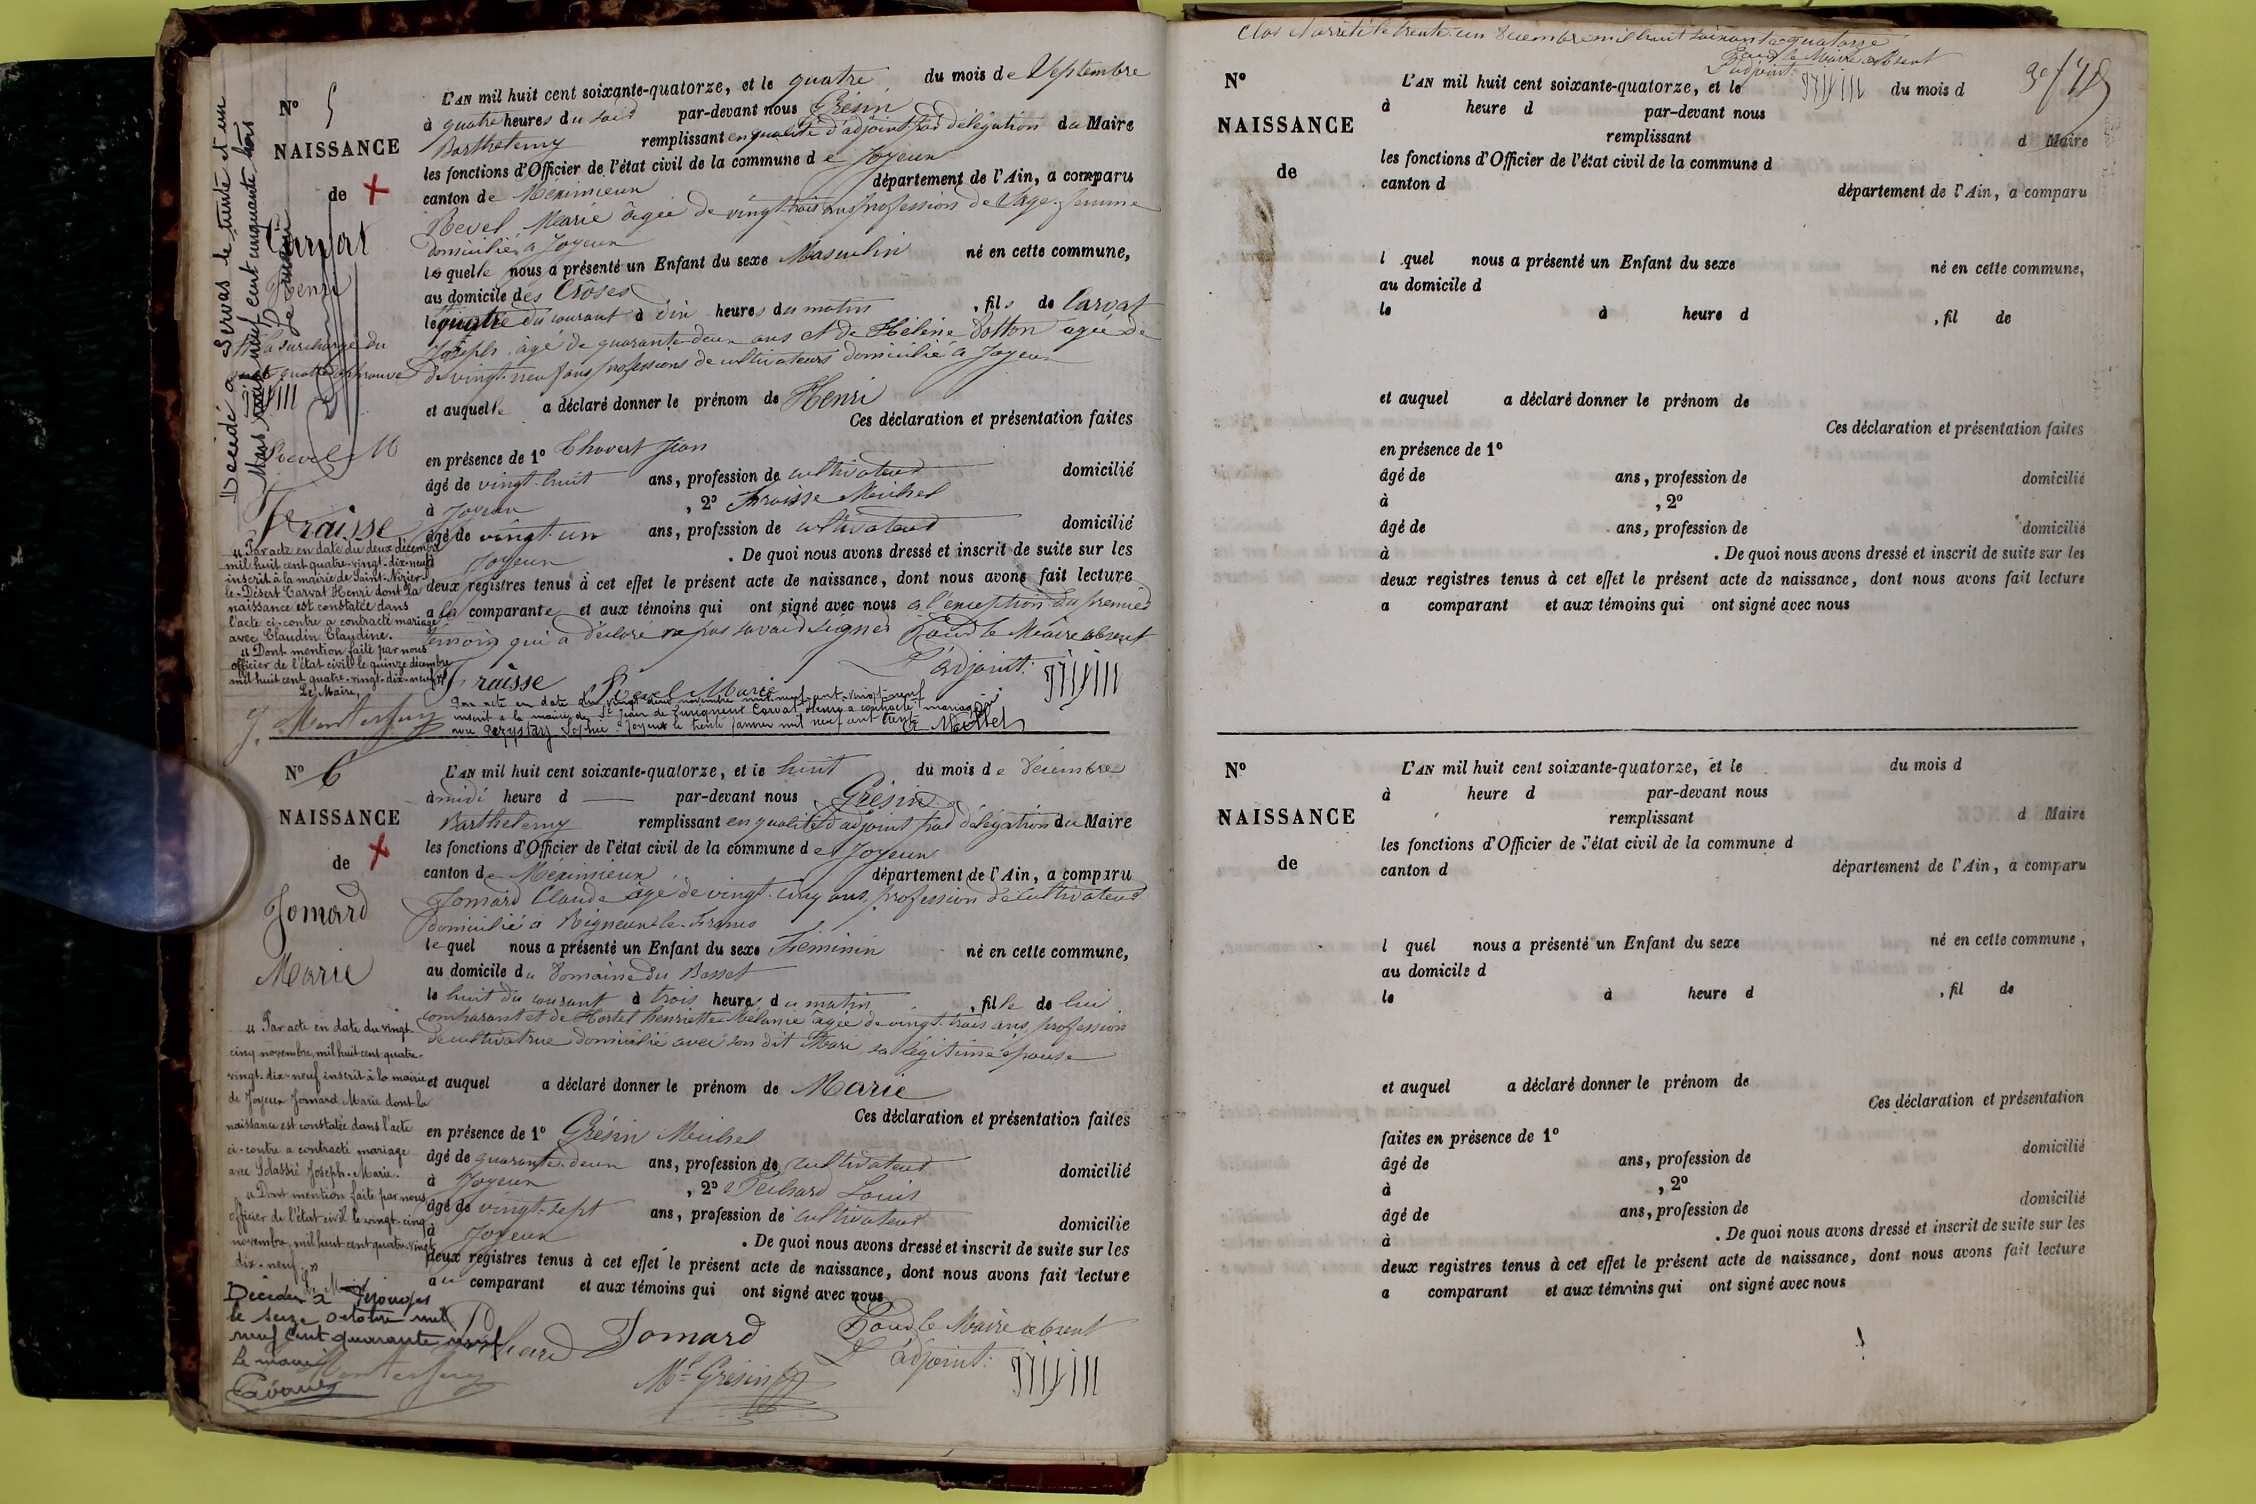 N° 5
NAISSANCE
de
Carvat
Henri
la surcharge du
mot quatre approuvée
Revel M
Fraisse
Décédé à Servas le trente et un
Mars mil neuf cent cinquante
L'AN mil huit cent soixante-quatorze, et le quatre du mois de Septembre
à quatre heures du soir par-devant nous Grésin
Barthelemy remplissant en qualité d'adjoint par délégation du Maire
les fonctions d'Officier de l'état civil de la commune de Joyeux
canton de Méximieux département de l'Ain, a comparu
Revel Marie âgée de vingt trois ans profession de Sage-femme
domiciliée à Joyeux
laquelle nous a présenté un Enfant du sexe Masculin né en cette commune,
au domicile des Crôses
le quatre du courant à dix heures du matin, fils de Carvat
Joseph, âgé de quarante deux ans et de Hélène Dotton agée de
de vingt-neuf ans professions de cultivateurs domicilié à Joyeux
et auquel le a déclaré donner le prénom de Henri
Ces déclaration et présentation faites
en présence de 1° Chavert Jean
âgé de vingt-huit ans, profession de cultivateur domicilié
à Joyeux, 2° Fraisse Michel
âgé de vingt-un ans, profession de cultivateur domicilié
Joyeux. De quoi nous avons dressé et inscrit de suite sur les
deux registres tenus à cet effet le présent acte de naissance, dont nous avons fait lecture
a la comparante et aux témoins qui ont signé avec nous a l'exception du premier
témoin qui a déclaré ne pas savoir signer Pour le Maire absent
L'adjoint:
Fraisse Revel Marie
" Par acte en date du deux décembre
mil huit cent quatre-vingt-dix-neuf
inscrit à la mairie de Saint-Nizier-
le-Désert Carvat Henri dont la
naissance est constatée dans
l'acte ci-contre a contracté mariage
avec Claudin Claudine.
" Dont mention faite par nous
officier de l'état civil le quinze décembre
mil huit cent quatre-vingt-dix-neuf
Le Maire,
Par acte en date du vingt deux novembre mil neuf cent vingt neuf
inscrit à la mairie de St Jean de Carvat Henri a contracté mariage
avec Sophie. Joyeux le trente janvier mil neuf cent trente
N° 6
NAISSANCE
de
Jomard
Marie
L'AN mil huit cent soixante-quatorze, et le huit du mois de Décembre
à midi heure d par-devant nous Grésin
Barthelemy remplissant en qualité d'adjoint par délégation du Maire
les fonctions d'Officier de l'état civil de la commune de Joyeux
canton de Méximieux département de l'Ain, a comparu
Jomard Claude âgé de vingt-cinq ans, profession de cultivateur
domicilié à Rigneux-le-Franc
lequel nous a présenté un Enfant du sexe Féminin né en cette commune,
au domicile du Domaine du Basset
le huit du courant à trois heures du matin, fille de lui
comparant et de Hortet henriette Mélanie âgée de vingt-trois ans, profession
de cultivatrice domicilié avec son dit Mari, sa légitime épouse
et auquel a déclaré donner le prénom de Marie
Ces déclaration et présentation faites
en présence de 1° Grésin Michel
âgé de quarante-deux ans, profession de cultivateur domicilié
à Joyeux, 2° Pechard Louis
âgé de vingt-sept ans, profession de cultivateur domicilié
à Joyeux. De quoi nous avons dressé et inscrit de suite sur les
deux registres tenus à cet effet le présent acte de naissance, dont nous avons fait lecture
au comparant et aux témoins qui ont signé avec nous
Pour le Maire absent
L'adjoint:
Jomard
Ml Grésin
" Par acte en date du vingt-
cinq novembre, mil huit cent quatre-
vingt-dix-neuf inscrit à la mairie
de Joyeux Jomard Marie dont la
naissance est constatée dans l'acte
ci-contre a contracté mariage
avec Joseph-Marie.
" Dont mention faite par nous
officier de l'état civil le vingt-cinq
novembre, mil huit cent quatre-vingt
dix-neuf "
Décédée à Pérouges
le seize octobre mil
neuf cent quarante neuf
Le maire
Clos et arrêté le trente-un Décembre mil huit soixante quatorze
Pour le Maire absent
L'adjoint:
N°
NAISSANCE
de
L'AN mil huit cent soixante-quatorze, et le du mois d
à heure d par-devant nous
remplissant d Maire
les fonctions d'Officier de l'état civil de la commune d
canton d département de l'Ain, a comparu
l quel nous a présenté un Enfant du sexe né en cette commune,
au domicile d
le à heure d, fil de
et auquel a déclaré donner le prénom de
Ces déclaration et présentation faites
en présence de 1°
âgé de ans, profession de domicilié
à, 2°
âgé de ans, profession de domicilié
à. De quoi nous avons dressé et inscrit de suite sur les
deux registres tenus à cet effet le présent acte de naissance, dont nous avons fait lecture
a comparant et aux témoins qui ont signé avec nous
N°
NAISSANCE
de
L'AN mil huit cent soixante-quatorze, et le du mois d
à heure d par-devant nous
remplissant d Maire
les fonctions d'Officier de l'état civil de la commune d
canton d département de l'Ain, a comparu
l quel nous a présenté un Enfant du sexe né en cette commune,
au domicile d
le à heure d, fil de
et auquel a déclaré donner le prénom de
Ces déclaration et présentation
faites en présence de 1° domicilié
âgé de ans, profession de
à, 2° domicilié
âgé de ans, profession de
à. De quoi nous avons dressé et inscrit de suite sur les
deux registres tenus à cet effet le présent acte de naissance, dont nous avons fait lecture
a comparant et aux témoins qui ont signé avec nous